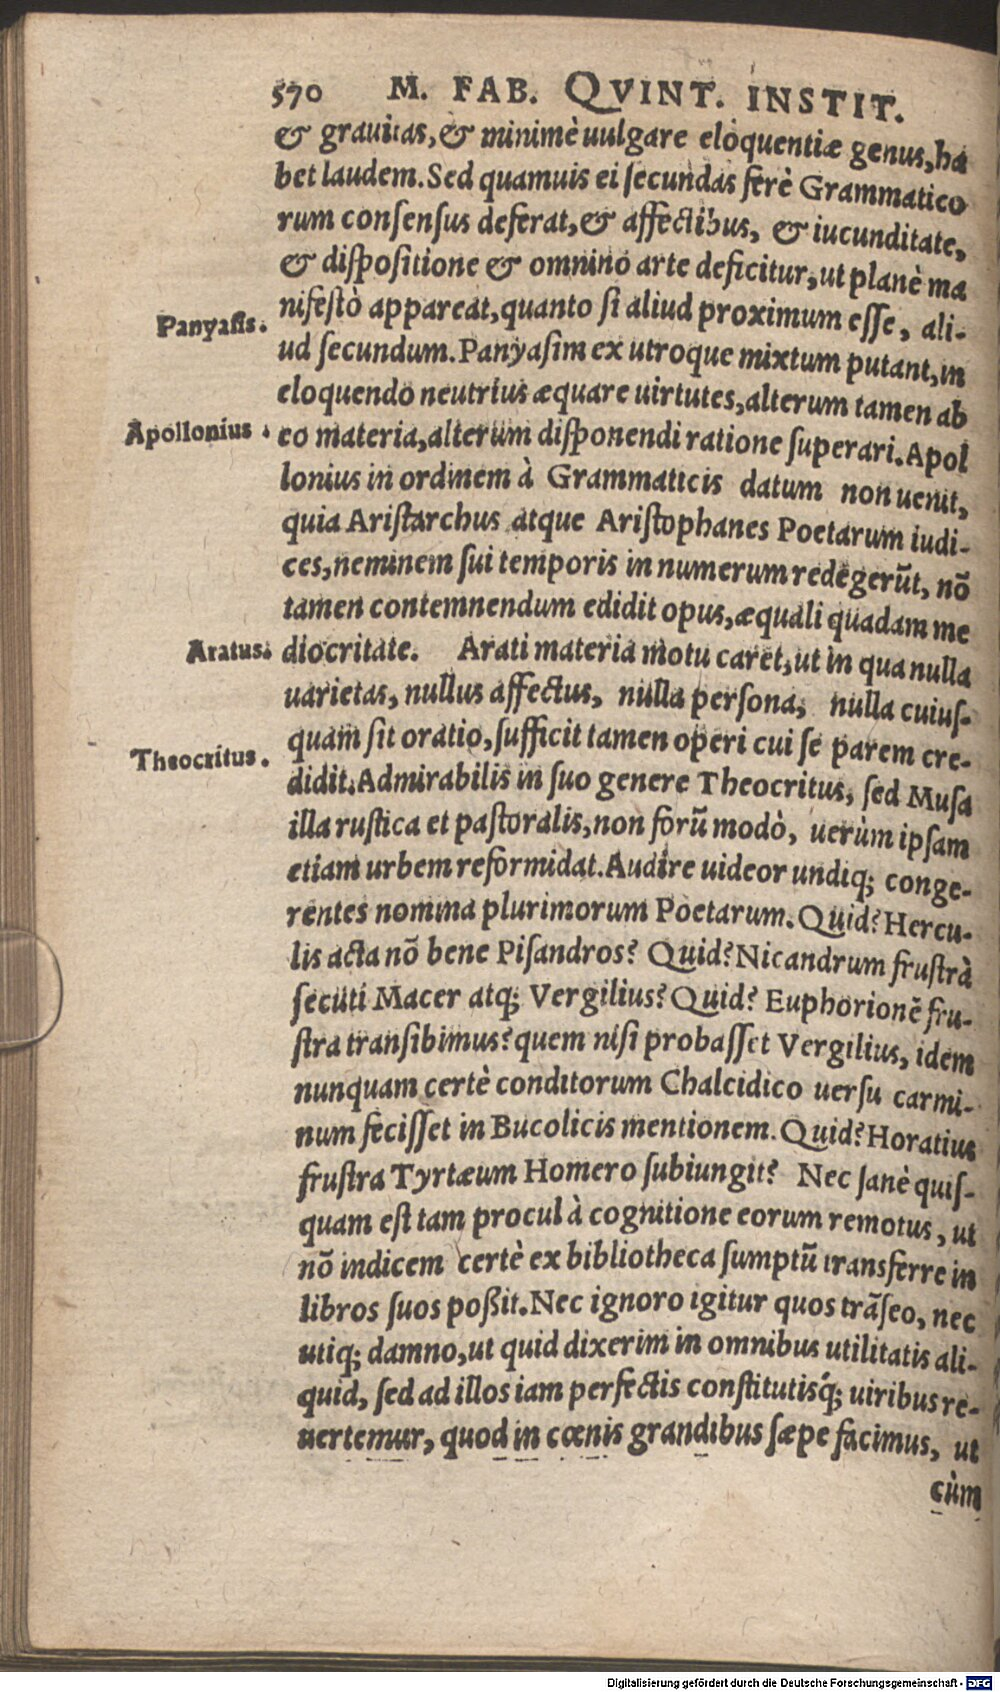 570 M. FAB. QVINT. INSTIT.
& grauitas, & minimè uulgare eloquentiæ genus, ha
bet laudem. Sed quamuis ei secundas ferè Grammatico
rum consensus deferat, & affectibus, & iucunditate,
& dispositione & omnino arte deficitur, ut planè ma
nifestò appareat, quanto si aliud proximum esse, ali-
Panyasis.
ud secundum. Panyasim ex utroque mixtum putant, in
eloquendo neutrius æquare uirtutes, alterum tamen ab
Apollonius.
eo materia, alterum disponendi ratione superari. Apol
lonius in ordinem à Grammaticis datum non uenit,
quia Aristarchus atque Aristophanes Poetarum iudi-
ces, neminem sui temporis in numerum redegerũt, nõ
tamen contemnendum edidit opus, æquali quadam me
Aratus.
diocritate. Arati materia motu caret, ut in qua nulla
uarietas, nullus affectus, nulla persona, nulla cuius-
quam sit oratio, sufficit tamen operi cui se parem cre-
Theocritus.
didit. Admirabilis in suo genere Theocritus, sed Musa
illa rustica et pastoralis, non forũ modò, uerùm ipsam
etiam urbem reformidat. Audire uideor undiq; conge-
rentes nomina plurimorum Poetarum. Quid? Hercu-
lis acta nõ bene Pisandros? Quid? Nicandrum frustrà
secuti Macer atq; Vergilius? Quid? Euphorionẽ fru-
stra transibimus? quem nisi probasset Vergilius, idem
nunquam certè conditorum Chalcidico uersu carmi-
num fecisset in Bucolicis mentionem. Quid? Horatius
frustra Tyrtæum Homero subiungit? Nec sanè quis-
quam est tam procul à cognitione eorum remotus, ut
nõ indicem certè ex bibliotheca sumptũ transferre in
libros suos poßit. Nec ignoro igitur quos trãseo, nec
utiq; damno, ut quid dixerim in omnibus utilitatis ali-
quid, sed ad illos iam perfectis constitutisq́; uiribus re-
uertemur, quod in cœnis grandibus sæpe facimus, ut
cùm
Digitalisierung gefördert durch die Deutsche Forschungsgemeinschaft - DFG